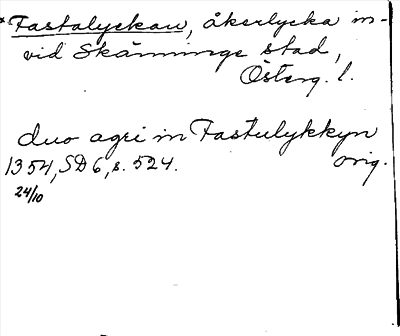 *Fastalyckan, åkerlycka in-
vid Skänninge stad,
Österg. l.
duo agri in Fastulykkyn
1354, SD 6, s. 524. orig.
24/10